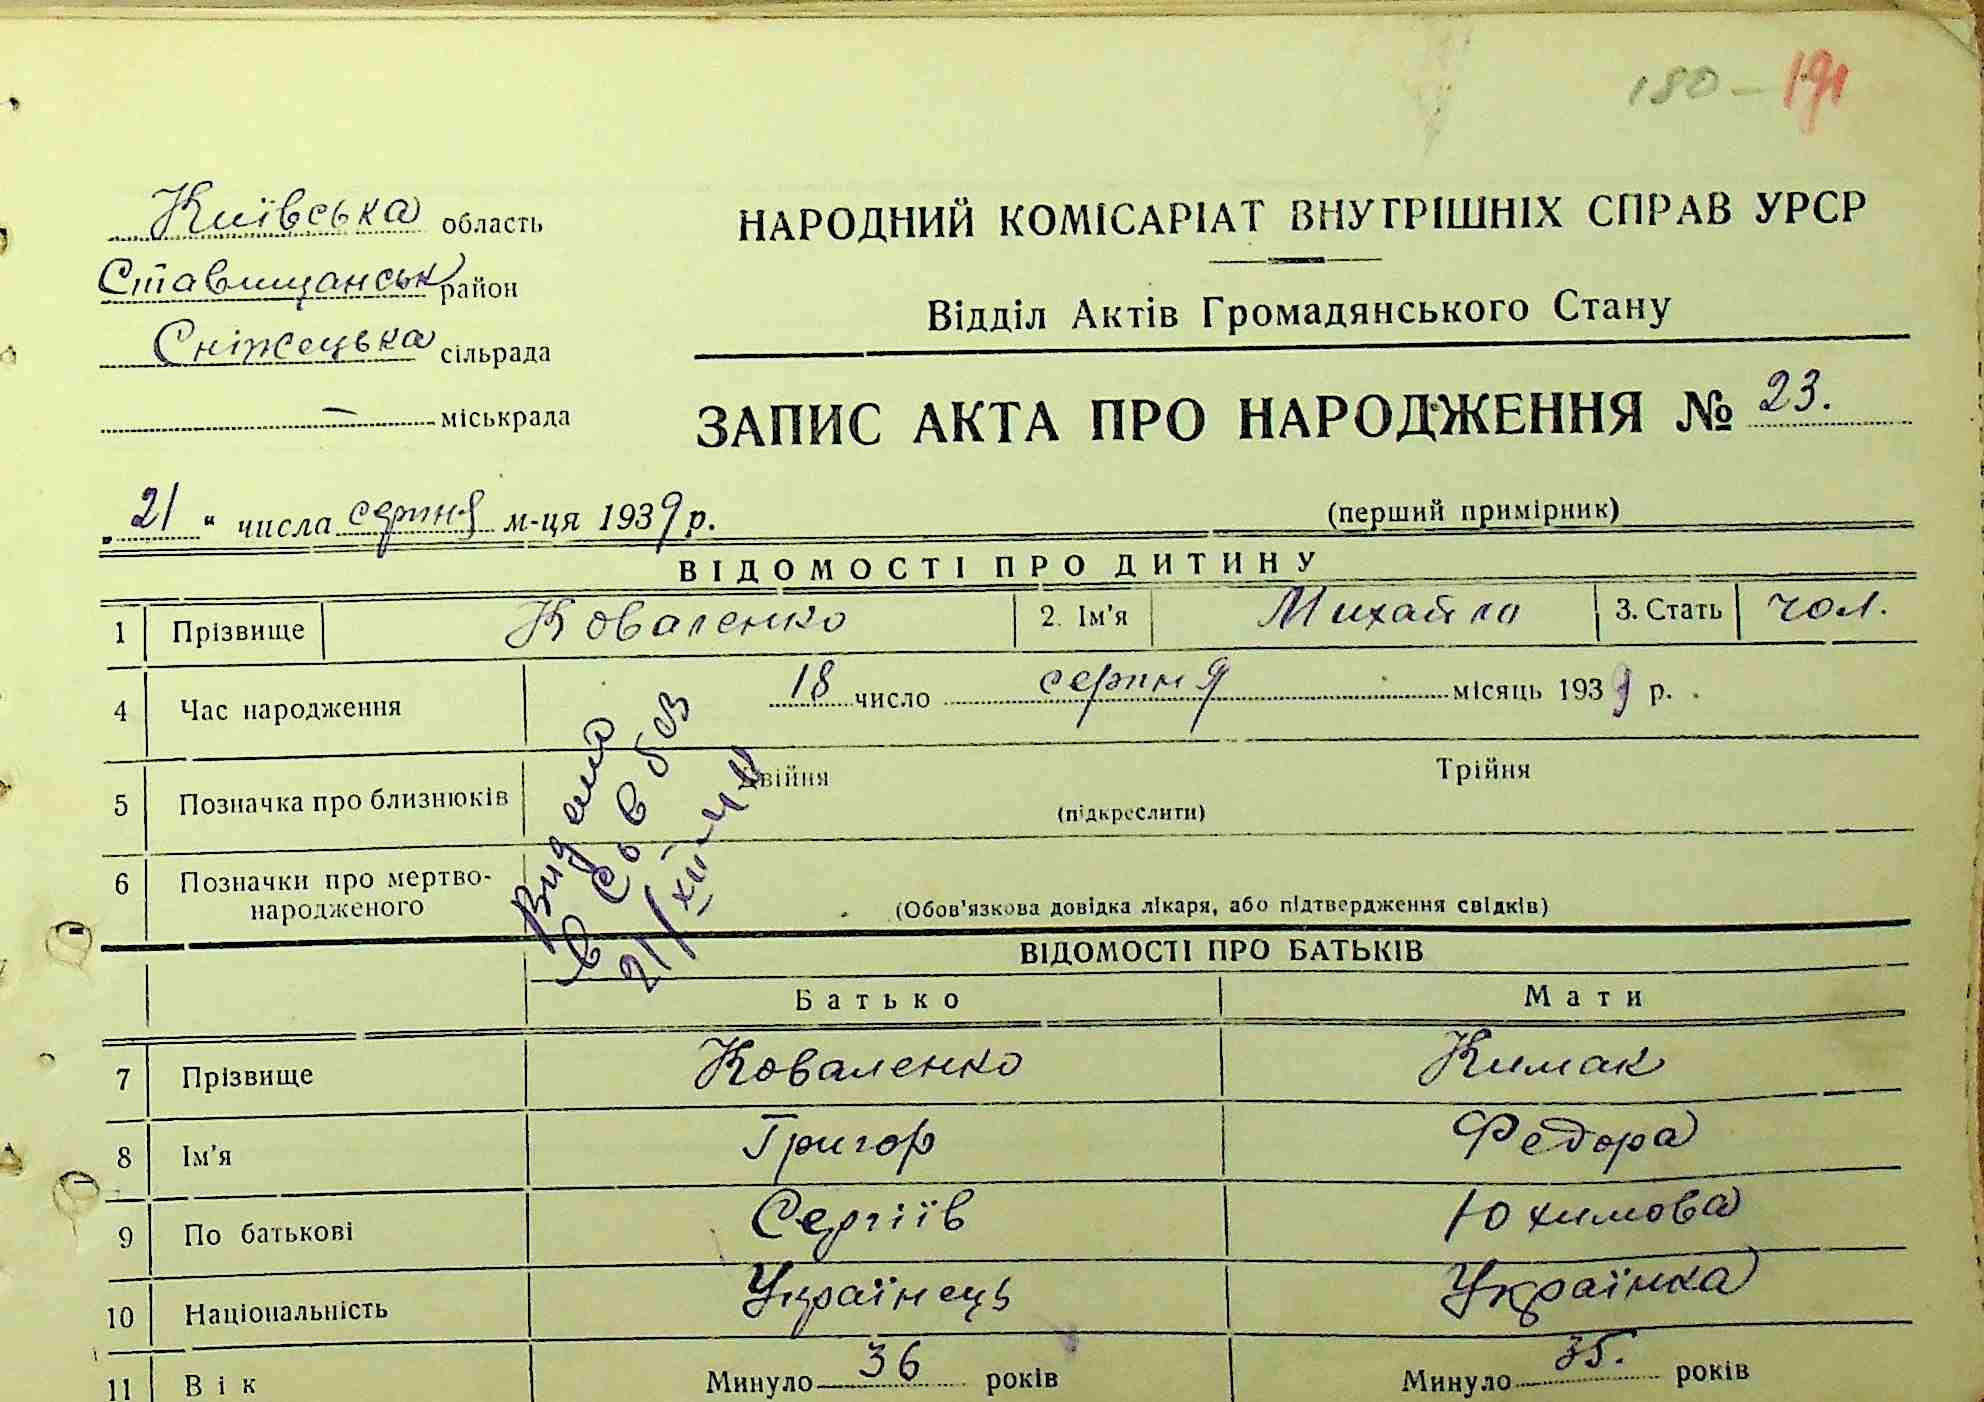 180 – 191
Київська область
Ставищанськ район
Сніжецька сільрада
— міськрада
НАРОДНИЙ КОМІСАРІАТ ВНУТРІШНІХ СПРАВ УРСР
Відділ Актів Громадянського Стану
ЗАПИС АКТА ПРО НАРОДЖЕННЯ № 23.
(перший примірник)
„21“ числа серпня м-ця 1939 р.
ВІДОМОСТІ ПРО ДИТИНУ
1 Прізвище Коваленко 2. Ім'я Михайло 3. Стать чол.
4 Час народження 18 число серпня місяць 1939 р.
5 Позначка про близнюків Двійня Трійня
(підкреслити)
6 Позначки про мертво-
народженого
(Обов'язкова довідка лікаря, або підтвердження свідків)
Видано
в
21/XII-
ВІДОМОСТІ ПРО БАТЬКІВ
Батько Мати
7 Прізвище Коваленко Кимак
8 Ім'я Григор Федора
9 По батькові Сергіїв Юхимова
10 Національність Українець Українка
11 Вік Минуло 36 років Минуло 35. років